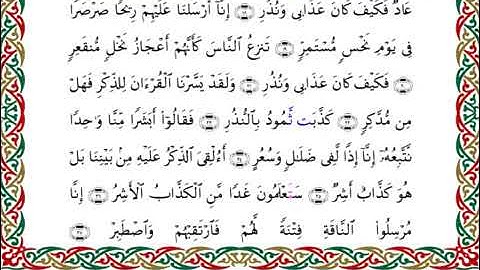 عَادٌ فَكَيْفَ كَانَ عَذَابِى وَنُذُرِ ۝١٨ إِنَّآ أَرْسَلْنَا عَلَيْهِمْ رِيحًا صَرْصَرًا
فِى يَوْمِ نَحْسٍ مُّسْتَمِرٍّ ۝١٩ تَنزِعُ ٱلنَّاسَ كَأَنَّهُمْ أَعْجَازُ نَخْلٍ مُّنقَعِرٍ
۝٢٠ فَكَيْفَ كَانَ عَذَابِى وَنُذُرِ ۝٢١ وَلَقَدْ يَسَّرْنَا ٱلْقُرْءَانَ لِلذِّكْرِ فَهَلْ
مِن مُّدَّكِرٍ ۝٢٢ كَذَّبَتْ ثَمُودُ بِٱلنُّذُرِ ۝٢٣ فَقَالُوٓا۟ أَبَشَرًا مِّنَّا وَٰحِدًا
نَّتَّبِعُهُۥٓ إِنَّآ إِذًا لَّفِى ضَلَٰلٍ وَسُعُرٍ ۝٢٤ أَءُلْقِىَ ٱلذِّكْرُ عَلَيْهِ مِنۢ بَيْنِنَا بَلْ
هُوَ كَذَّابٌ أَشِرٌ ۝٢٥ سَيَعْلَمُونَ غَدًا مَّنِ ٱلْكَذَّابُ ٱلْأَشِرُ ۝٢٦ إِنَّا
مُرْسِلُوا۟ ٱلنَّاقَةِ فِتْنَةً لَّهُمْ فَٱرْتَقِبْهُمْ وَٱصْطَبِرْ ۝٢٧